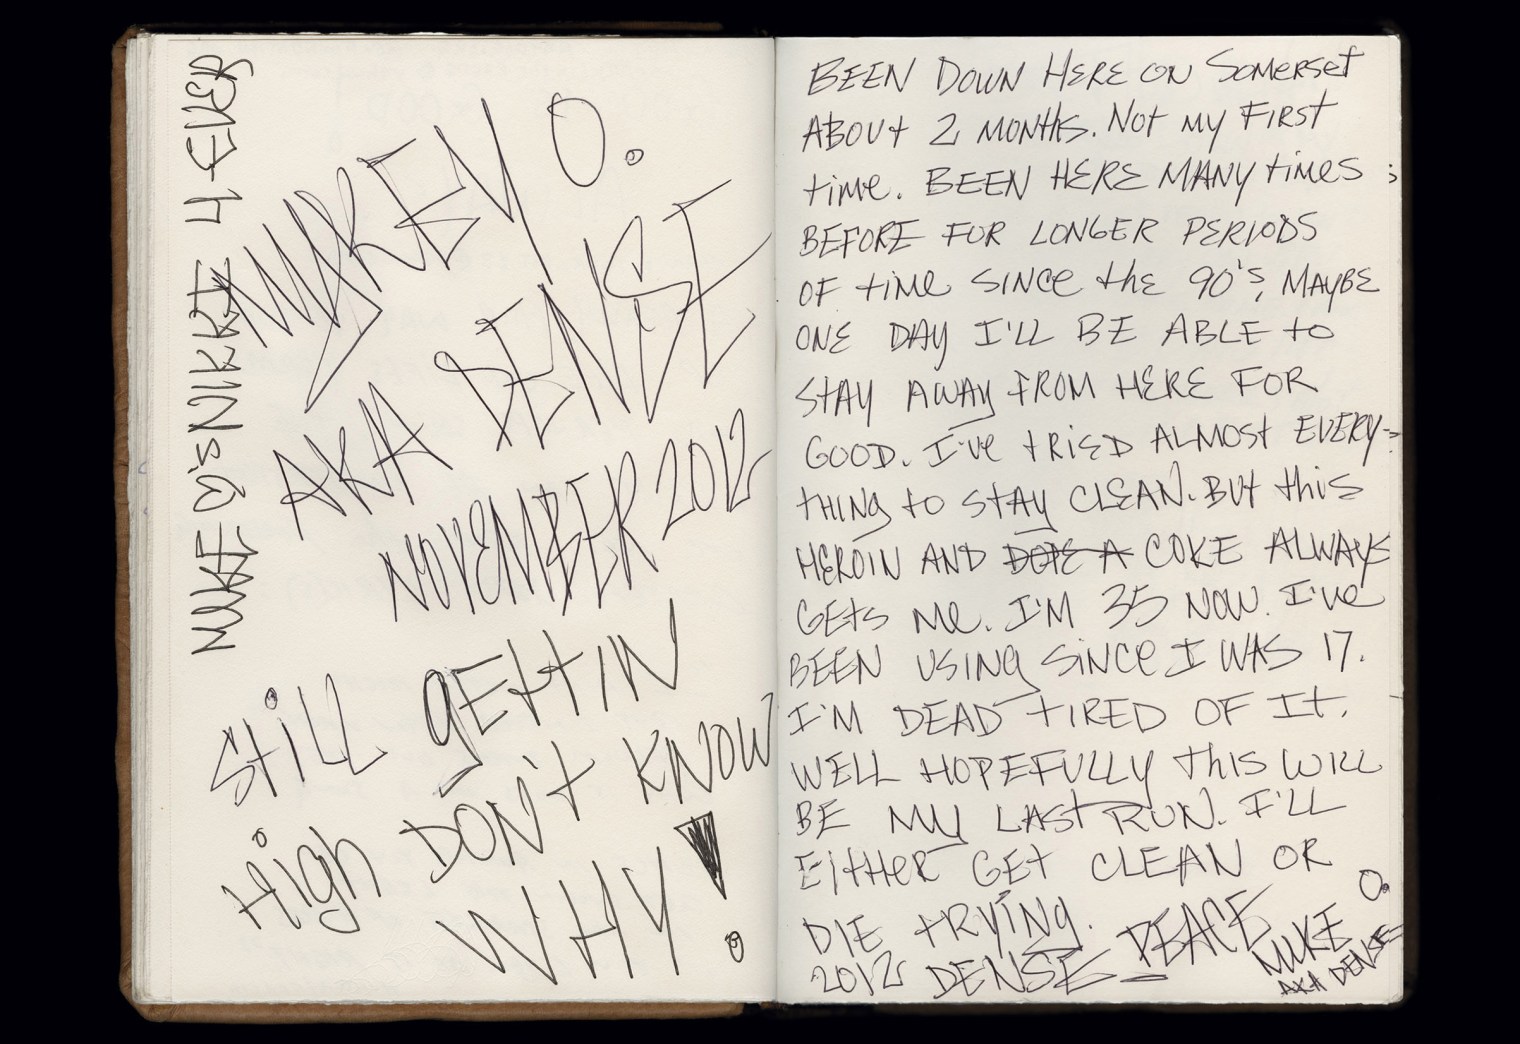 MIKE ♡'s NIKKI 4-EVER
MIKEY O.
AKA DENSE
NOVEMBER 2012
STiLL gETTIN
HigH DON't KNOW
WHY!
BEEN DOWN HERE ON SOMERSET
ABOUT 2 MONTHS. NOT MY FIRST
time. BEEN HERE MANY TIMES
BEFORE FOR LONGER PERIODS
OF TIME SINCE the 90's, MAYBE
ONE DAY I'LL BE ABLE TO
STAY AWAY FROM HERE FOR
GOOD. I've TRIED ALMOST EVERY-
THING TO STAY CLEAN. BUT this
HEROIN AND DOPE A COKE ALWAYS
GETS Me. I'M 35 NOW. I've
BEEN USING SINCE I WAS 17.
I'M DEAD TIRED OF IT.
WELL HOPEFULLY this WILL
BE MY LAST RUN. I'LL
EITHER GET CLEAN OR
DIE TRYING. PEACE MIKE O.
2012 DENSE AKA DENSE